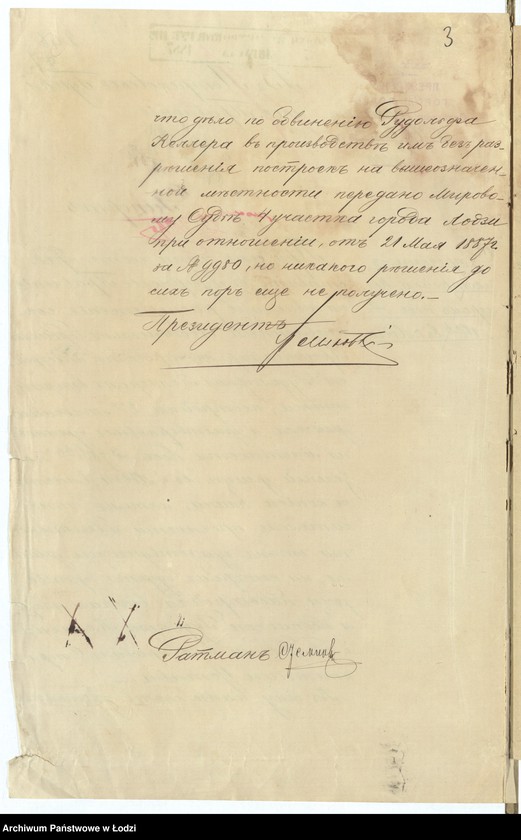 3
что дѣло по обвиненію Рудольфа
Келлера въ производствѣ имъ безъ раз-
рѣшенія построекъ на вышеозначен-
ной мѣстности передано Мирово-
му Судьѣ 4 участка города Лодзи
при отношеніи, отъ 21 Мая 1887 г.
за № 9980, но никакого рѣшенія до
сихъ поръ еще не получено.—
Президентъ
Ратманъ
Archiwum Państwowe w Łodzi